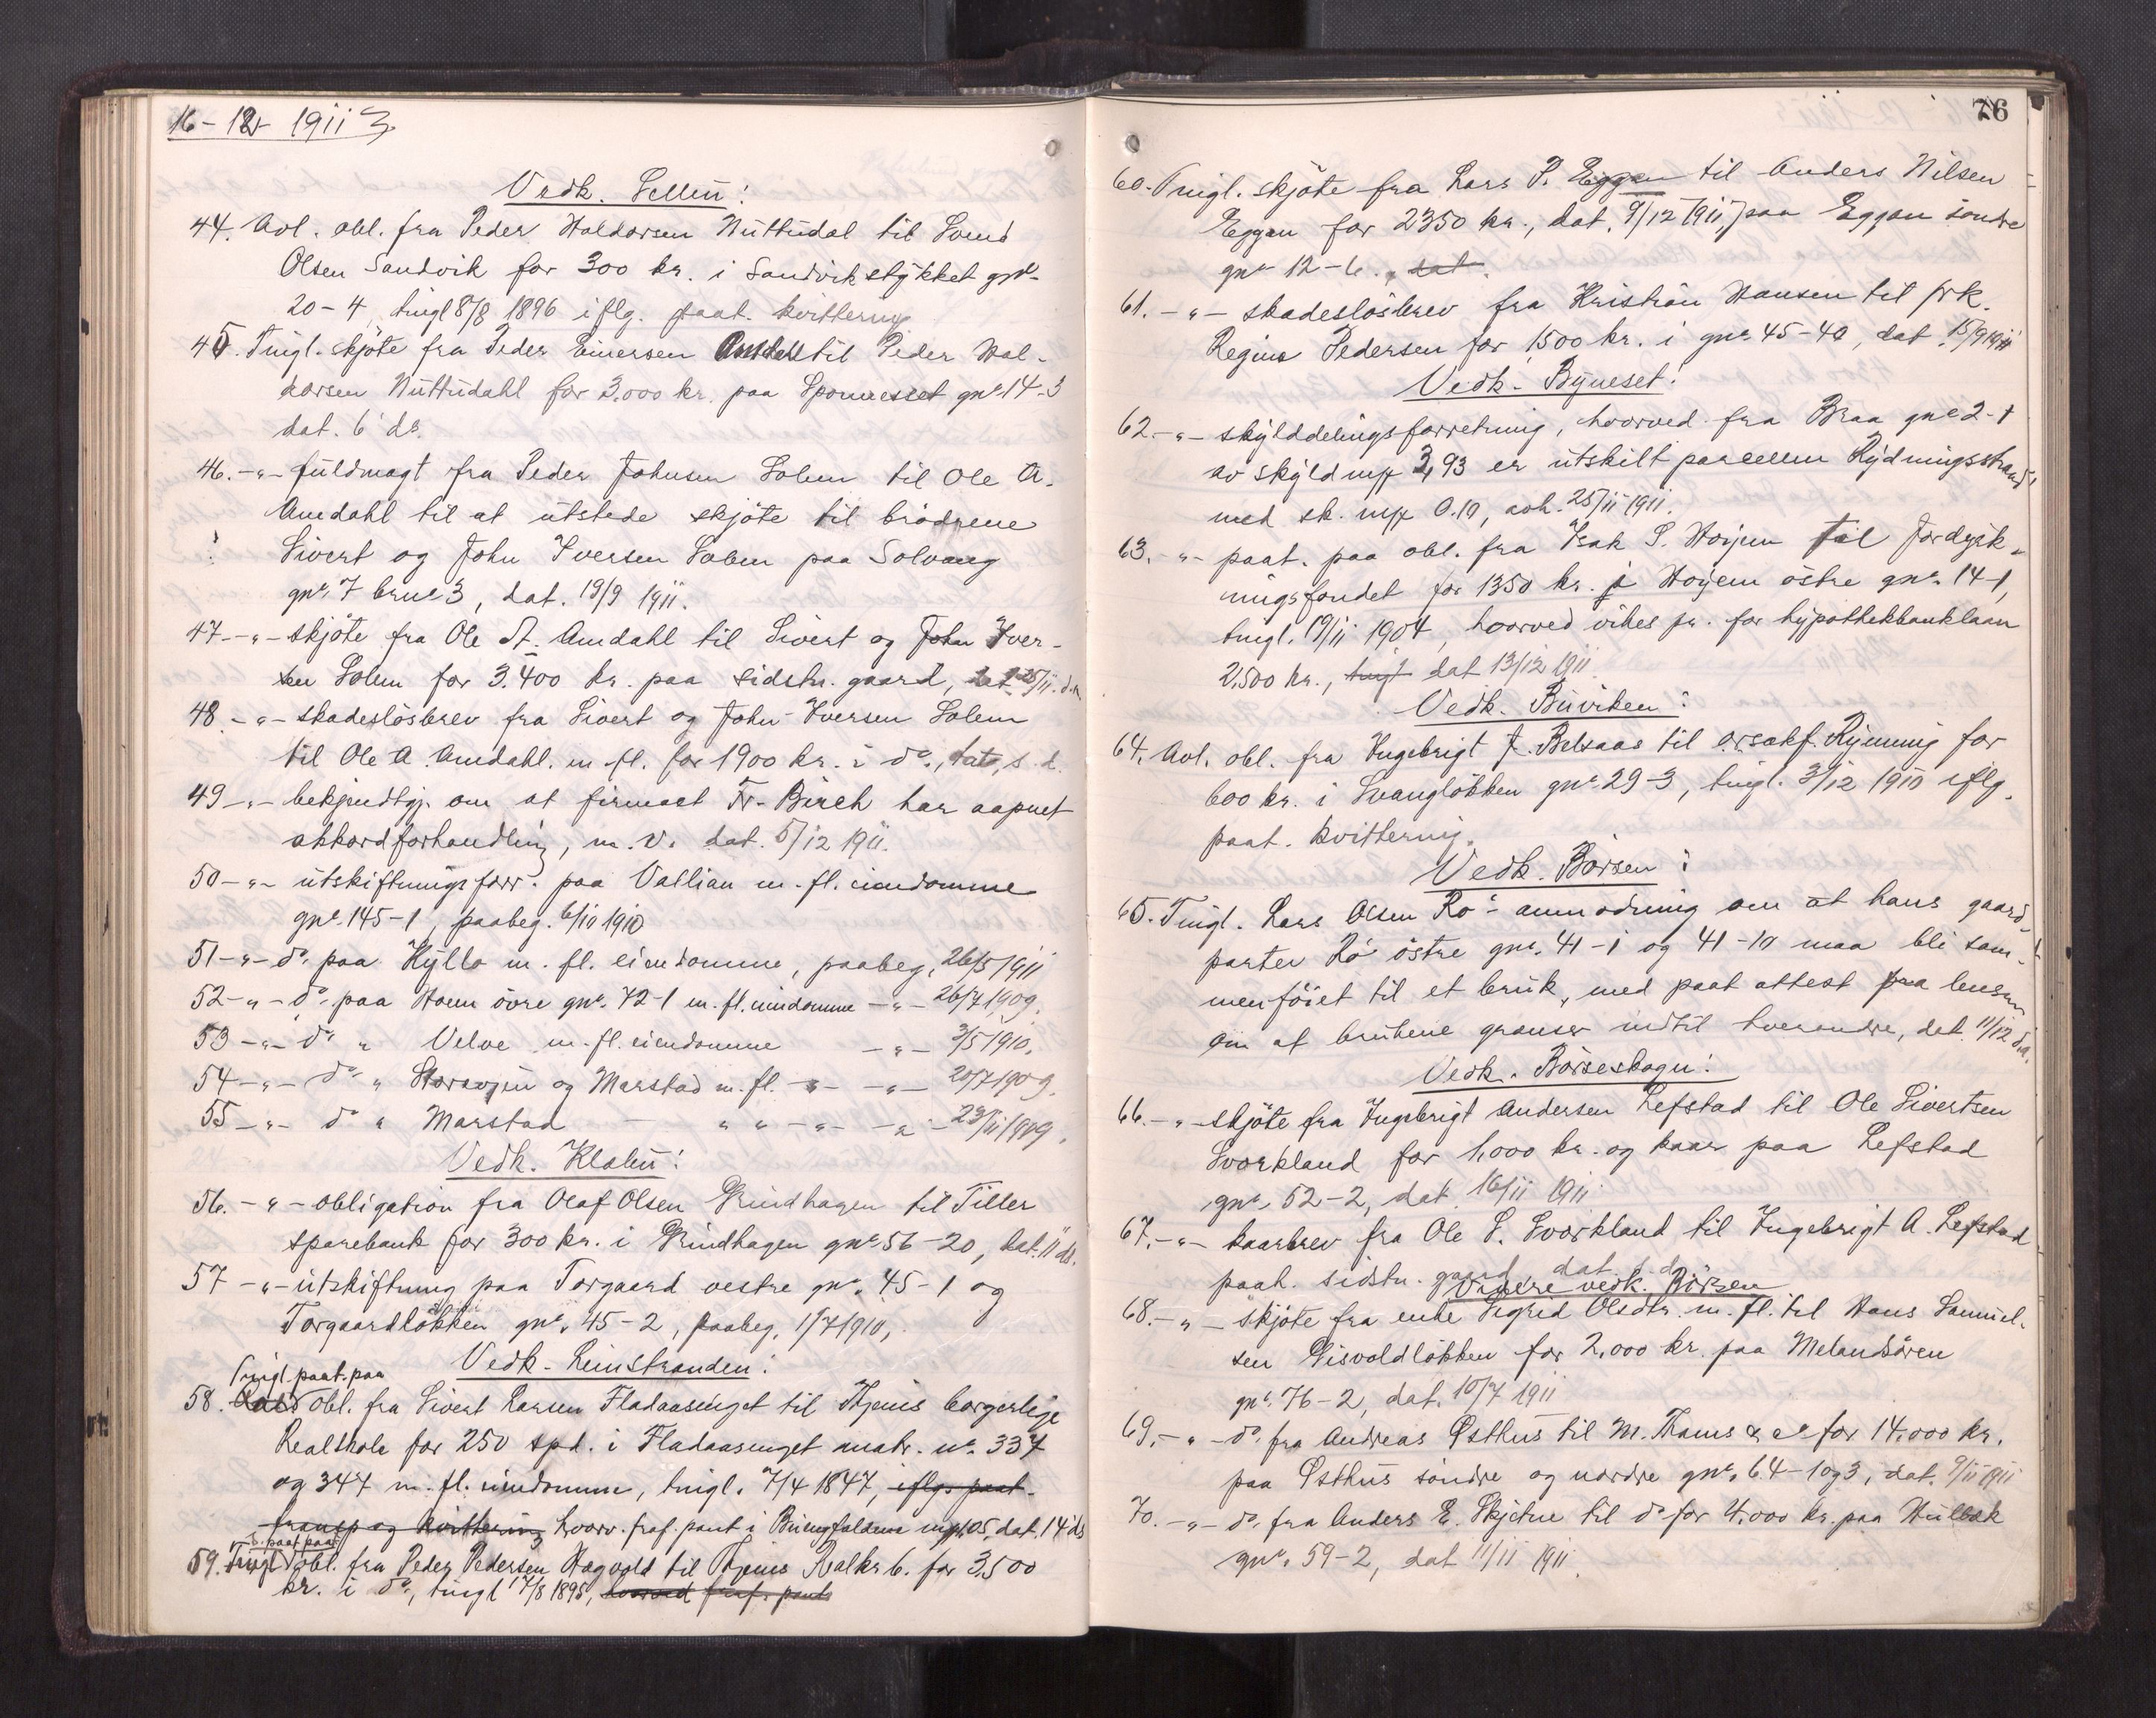 16-12-1911
Vedk. Selbu:
44. Avl. obl. fra Peder Haldorsen Nuttudal til Svend
Olsen Sandvik for 300 kr. i Sandvikstykket gnr.
20-4, tingl 8/8 1896 iflg. paat. kvittering
45. Tingl. skjöte fra Peder Einersen til Peder Hal-
dorsen Nuttudahl for 3.000 kr. paa gnr. 14-3
dat. 6 ds.
46. -"- fuldmagt fra Peder Johnsen Solem til Ole A.
Amdahl til at utstede skjöte til brödrene
Sivert og John Iversen Solem paa Solvang
gnr. 7 brnr 3, dat. 19/9 1911.
47 -"- skjöte fra Ole A. Amdahl til Sivert og John Iver-
sen Solem for 3.400 kr. paa sidstn. gaard, dat. 25/11 d.a.
48 -"- skadeslösbrev fra Sivert og John Iversen Solem
til Ole A. Amdahl m. fl. for 1900 kr. i do., dat. s.d.
49 -"- bekjendtgj. om at firmaet Fr. Birch har aapnet
akkordforhandling, m.v. dat. 5/12 1911.
50 -"- utskiftningsforr. paa Vallian m. fl. eiendomme
gnr. 145-1, paabeg. 6/10 1910
51 -"- do. paa Hyllo m. fl. eiendomme, paabeg. 26/5 1911
52 -"- do. paa Hoem övre gnr. 72-1 m. fl. eiendomme -"- 26/7 1909.
53 -"- do " Velve m. fl. eiendomme -"- 3/5 1910.
54 -"- do. " og Marstad m. fl. -"- -"- 20/7 1909.
55 -"- do " Marstad " " -"- -"- 23/11 1909.
Vedk. Klæbu:
56. -"- obligation fra Olaf Olsen Grindhagen til Tiller
sparebank for 300 kr. i Grindhagen gnr 56-20, dat. 11 ds.
57 -"- utskiftning paa Torgaard vestre gnr. 45-1 og
Torgaardlökken gnr. 45-2, paabeg. 1/7 1910,
Vedk. Leinstranden:
Tingl. paat. paa
58. obl. fra Sivert Larsen Fladaasinget til Thjems borgerlige
Realskole for 250 spd. i Fladaasenget matr. nr. 337
og 347 m. fl. eiendomme, tingl. 7/4 1847, iflg. paat.
transp og kvittering hvorv. fraf. pant i dat. 14 ds
paat paa
59. Tingl obl. fra Peder Pedersen Hagvold til Thjems Realsk. for 3,500
kr. i do, tingl 17/8 1895, hvorved fraf. pant
76
60. Tingl. skjöte fra Lars P. Eggan til Anders Nilsen
Eggan for 2350 kr., dat. 9/12 1911, paa Eggan söndre
gnr 12-6., dat.
61. -"- skadeslösbrev fra Kristian Hansen til frk.
Regine Pedersen for 1500 kr. i gnr. 45-40, dat. 15/9 1911
Vedk. Byneset:
62. -"- skylddelingsforretning, hvorved fra Braa gnr 2-1
av skyld mrk 3,93 er utskilt parcellen Rydningsstrand
med sk. mrk 0.10, avh. 25/11 1911.
63. -"- paat. paa obl. fra Isak S. Höijem til Jorddyrk-
ningsfondet for 1350 kr. i Höijem östre gnr. 14-1,
tingl. 19/11 1904, hvorved vikes pr. for hypothekbanklaan
2,500 kr., tingl dat 13/12 1911.
Vedk. Buviken:
64. Avl. obl. fra Ingebrigt J. Belsaas til o.r.sakf. Rynning for
600 kr. i Svanglökken gnr. 29-3, tingl. 3/12 1910 iflg.
paat. kvittering.
Vedk. Börsen:
65. Tingl. Lars Olsen Rö's anmodning om at hans gaard-
parter Rö östre gnr. 41-1 og 41-10 maa bli sam-
menföiet til et bruk, med paat attest fra lensm
om at brukene grænser indtil hverandre, dat. 11/12 d.a.
Vedk. Börseskogn:
66. -"- skjöte fra Ingebrigt Andersen Lefstad til Ole Sivertsen
Svorkland for 1,000 kr. og kaar paa Lefstad
gnr. 52-2, dat. 16/11 1911
67. -"- kaarbrev fra Ole S. Svorkland til Ingebrigt A. Lefstad
paah. sidstn. gaard, dat. s.d.
Videre vedk. Börsen
68. -"- skjöte fra enke Sigrid Olsdtr. m. fl. til Hans Samuel-
sen Gisvoldlökken for 2.000 kr. paa Melandsören
gnr. 76-2, dat. 10/7 1911
69. -"- do. fra Andreas Östhus til M. Thams & Co for 14.000 kr.
paa Östhus söndre og nordre gnr. 64-1 og 3, dat. 9/11 1911
70. -"- do. fra Anders E. Skjetne til do for 4.000 kr. paa Hulbak
gnr. 59-2, dat 11/11 1911.